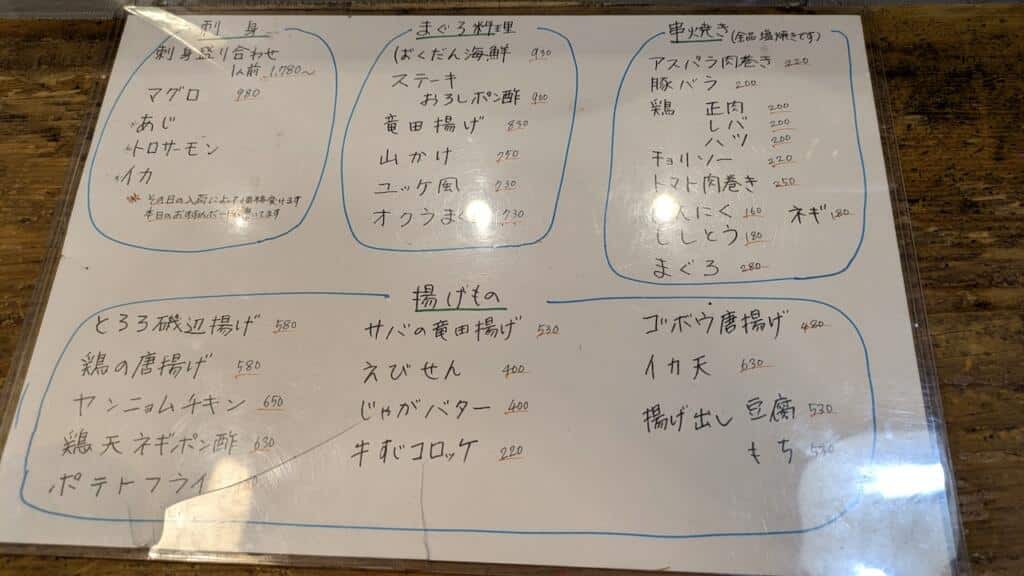 刺身
刺身盛り合わせ
1人前 1,780〜
マグロ 980
あじ
トロサーモン
イカ
※その日の入荷によって価格変ります
本日のおすすめボードに書いてます
まぐろ料理
ばくだん海鮮 930
ステーキ
おろしポン酢 900
竜田揚げ 830
山かけ 750
ユッケ風 730
オクラまぐろ 730
串焼き(全品塩焼きです)
アスパラ肉巻き 220
豚バラ 200
鶏 正肉 200
レバ 200
ハツ 200
チョリソー 220
トマト肉巻き 250
にんにく 160 ネギ 180
ししとう 180
まぐろ 280
揚げもの
とろろ磯辺揚げ 580
鶏の唐揚げ 580
ヤンニョムチキン 650
鶏天ネギポン酢 630
ポテトフライ
サバの竜田揚げ 530
えびせん 400
じゃがバター 400
牛すじコロッケ 220
ゴボウ唐揚げ 480
イカ天 630
揚げ出し 豆腐 530
もち 530